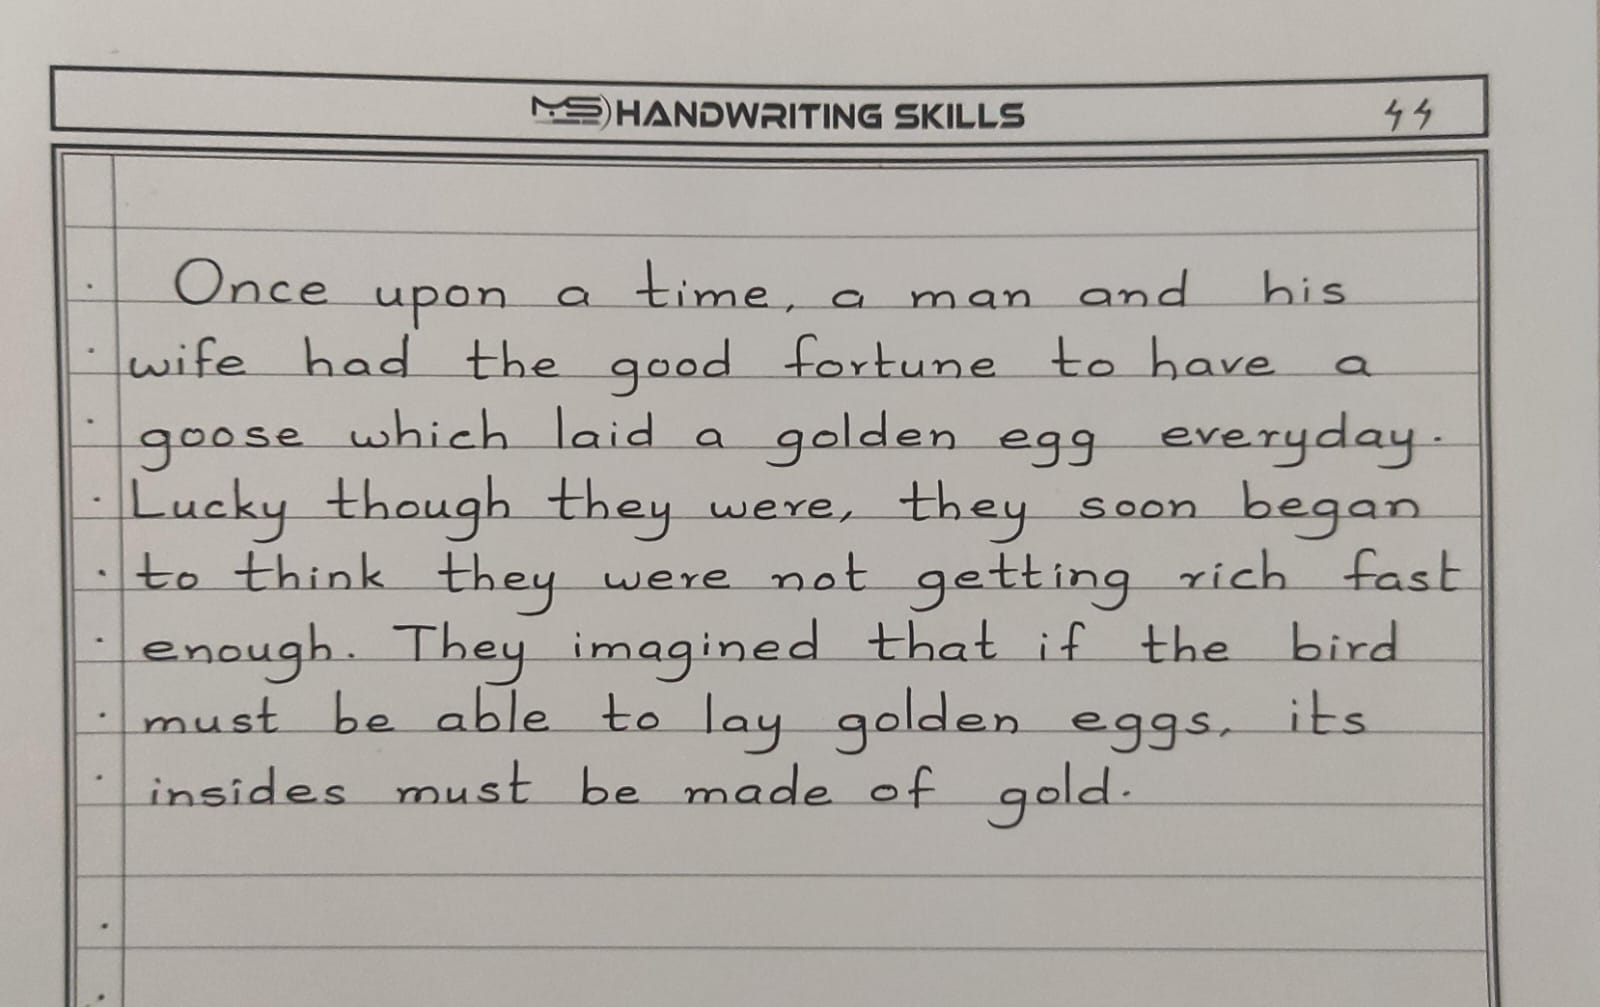 MS HANDWRITING SKILLS 44
Once upon a time, a man and his
wife had the good fortune to have a
goose which laid a golden egg everyday.
Lucky though they were, they soon began
to think they were not getting rich fast
enough. They imagined that if the bird
must be able to lay golden eggs, its
insides must be made of gold.